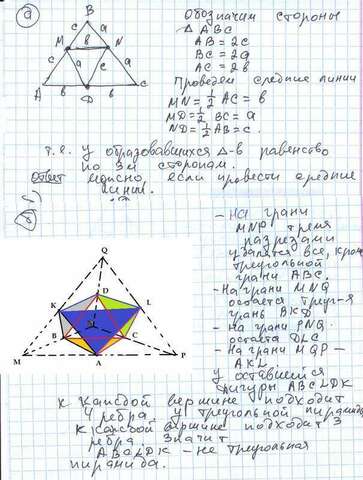 а
B
c
a
M
b
N
c
a
c
a
A
b
D
b
C
Обозначим стороны
△ ABC
AB = 2c
BC = 2a
AC = 2b
Проведем средние линии
MN = 1/2 AC = b
MD = 1/2 BC = a
ND = 1/2 AB = c.
т.е. у образовавшихся △-в равенство
по 3м сторонам.
Ответ можно, если провести средние
линии.
б
Q
D
K
L
N
B
C
M
A
P
- На грани
MNP тремя
разрезами
удалятся все, кроме
треугольной
грани ABC.
- На грани MNQ
остается треуг-я
грань BKD
- На грани PNQ
остается DLC
- На грани MQP -
AKL
у оставшейся
фигуры ABCLDK
к каждой вершине подходит
4 ребра. у треугольной пирамиды
к каждой вершине подходит 3
ребра. Значит
ABCLDK - не треугольная
пирамида.